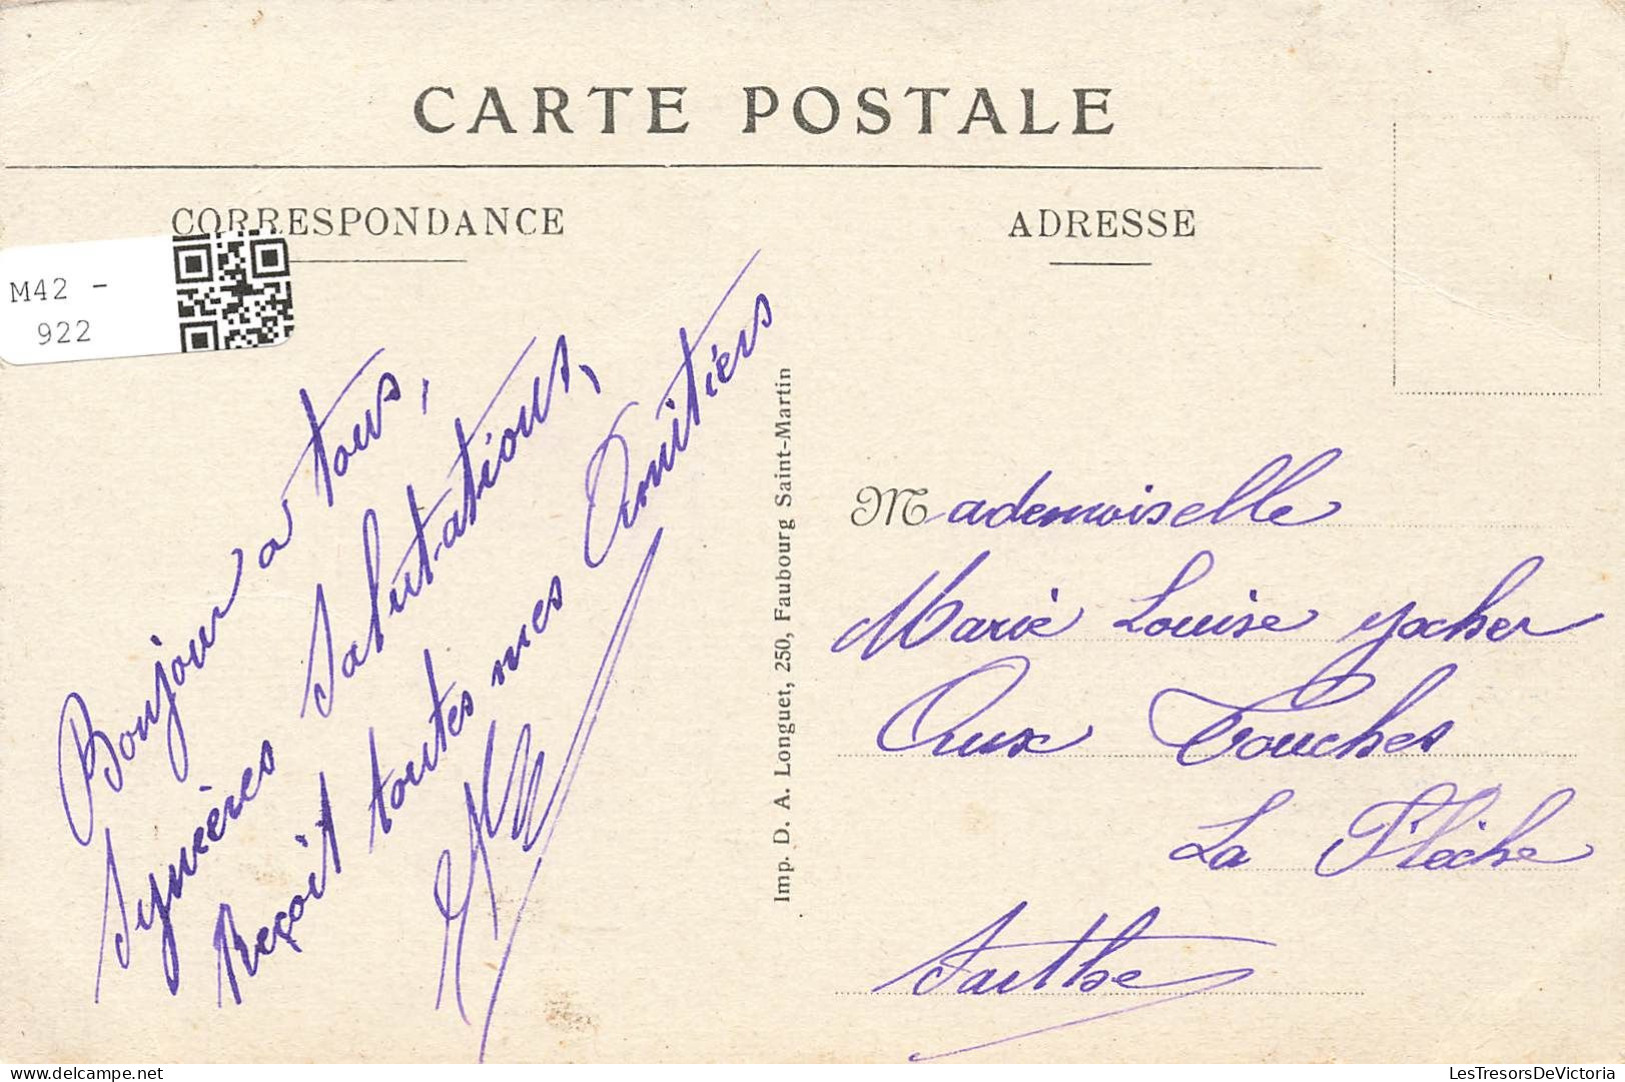 CARTE POSTALE
CORRESPONDANCE
ADRESSE
M42 -
922
Bonjour a tous,
Salutations,
Reçoit toutes mes Amitiers
Imp. D. A. Longuet, 250, Faubourg Saint-Martin
Mademoiselle
Marie Louise
Aux Touches
La Flèche
Sarthe
LesTresorsDeVictoria